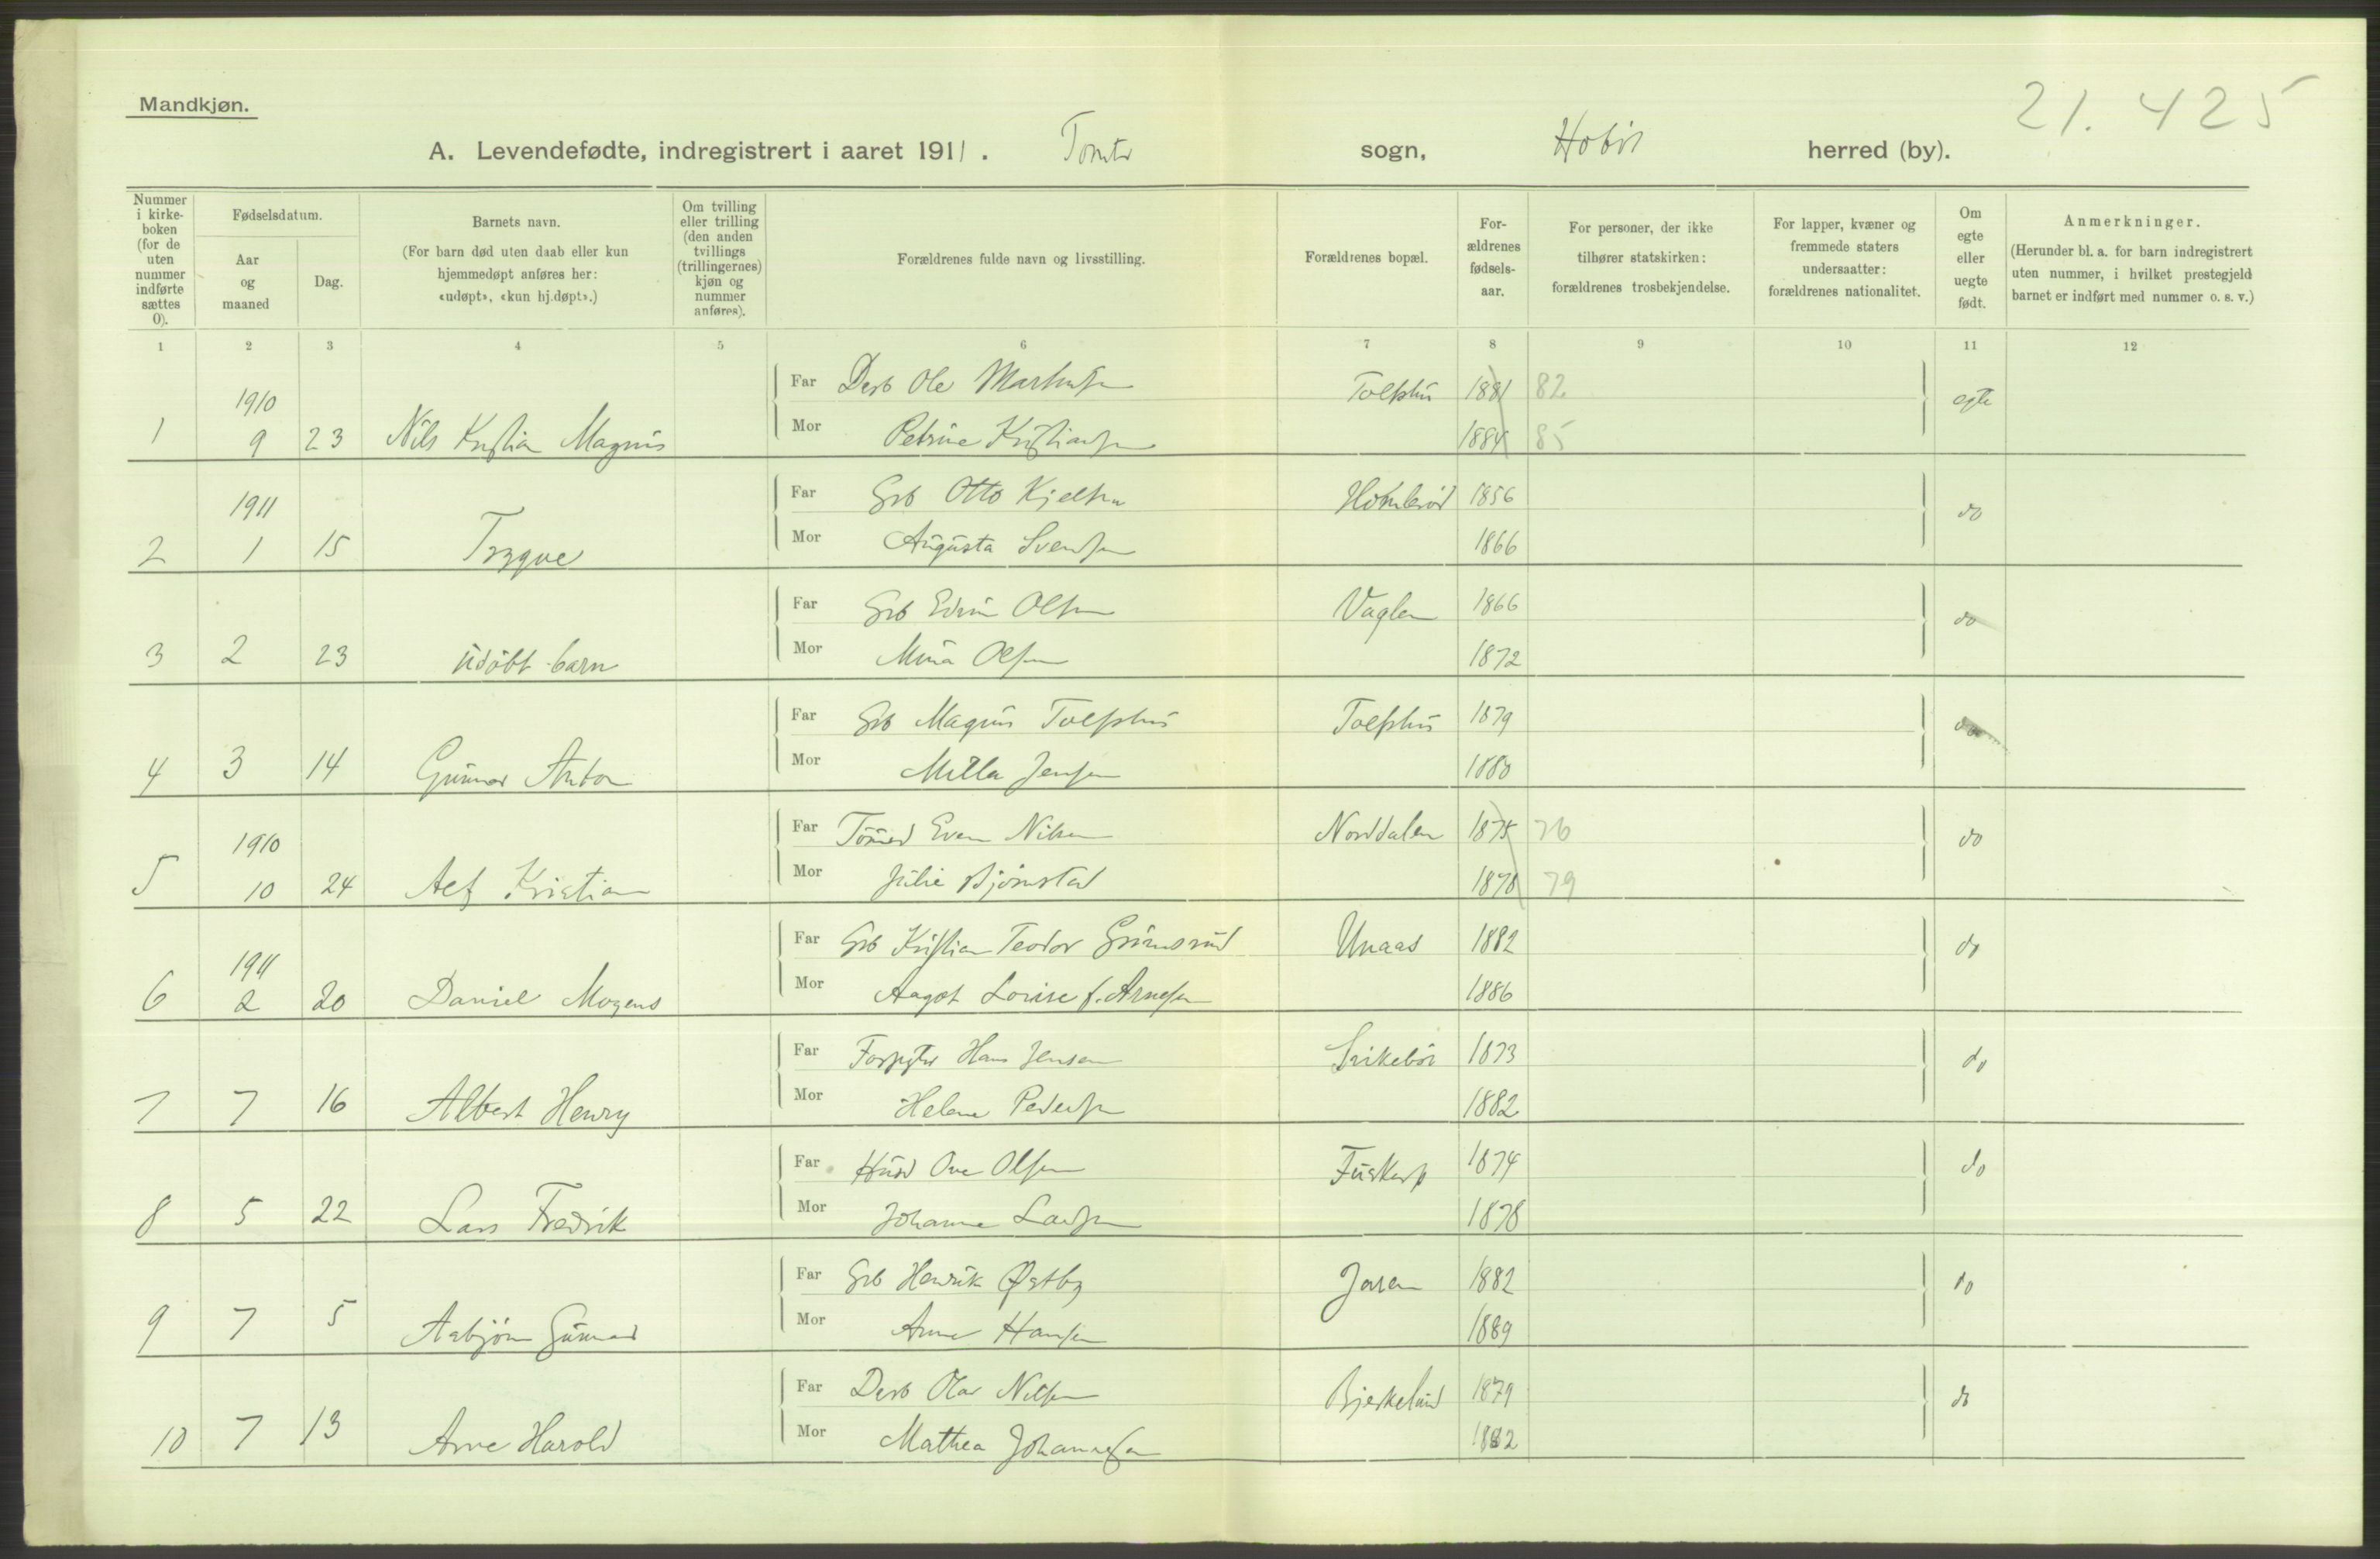 21. 425
Mandkjøn.
A. Levendefødte, indregistrert i aaret 1911. Tomter sogn, Hobøl herred (by).
Nummer i kirkeboken (for de uten nummer indførte sættes 0).
Fødselsdatum.
Aar og maaned
Dag.
Barnets navn.
(For barn død uten daab eller kun hjemmedøpt anføres her: «udøpt», «kun hj.døpt».)
Om tvilling eller trilling (den anden tvillings (trillingernes) kjøn og nummer anføres).
Forældrenes fulde navn og livsstilling.
Forældrenes bopæl.
Forældrenes fødselsaar.
For personer, der ikke tilhører statskirken: forældrenes trosbekjendelse.
For lapper, kvæner og fremmede staters undersaatter: forældrenes nationalitet.
Om egte eller uegte født.
Anmerkninger.
(Herunder bl. a. for barn indregistrert uten nummer, i hvilket prestegjeld barnet er indført med nummer o. s. v.)
1 2 3 4 5 6 7 8 9 10 11 12
Far Ole 1881 82 egte
1 1910 9 23 Nils Kristian Magnus Mor Petrine Kristiansen 1884 85
Far Grb Otto Kjelsen 1856 do
2 1911 1 15 Trygve Mor Augusta Svendsen 1866
Far Grb Edvin Olsen Vaglen 1866 do
3 2 23 udøbt barn Mor Mina Olsen 1872
Far Grb Magnus Tolfshus Tolfshus 1879 do
4 3 14 Gunnar Anton Mor Milla Jensen 1880
Far Tømrer Even Nilsen Norddalen 1875 76 do
5 1910 10 24 Alf Kristian Mor Julie Bjørnstad 1878 79
Far Grb Kristian Teodor Grimsrud Unaas 1882 do
6 1911 2 20 Daniel Mogens Mor Aagot Lovise f. Arnesen 1886
Far Forpgter Hans Jensen 1873 do
7 7 16 Albert Henry Mor Helene Pedersen 1882
Far Husm Ove Olsen 1874 do
8 5 22 Lars Fredrik Mor Johanne Larsen 1878
Far Grb Henrik Østby Jaren 1882 do
9 7 5 Asbjørn Gunnar Mor Anna Hansen 1889
Far Olav Nilsen Bjerkelund 1879 do
10 7 13 Arne Harold Mor Mathea Johannesen 1882